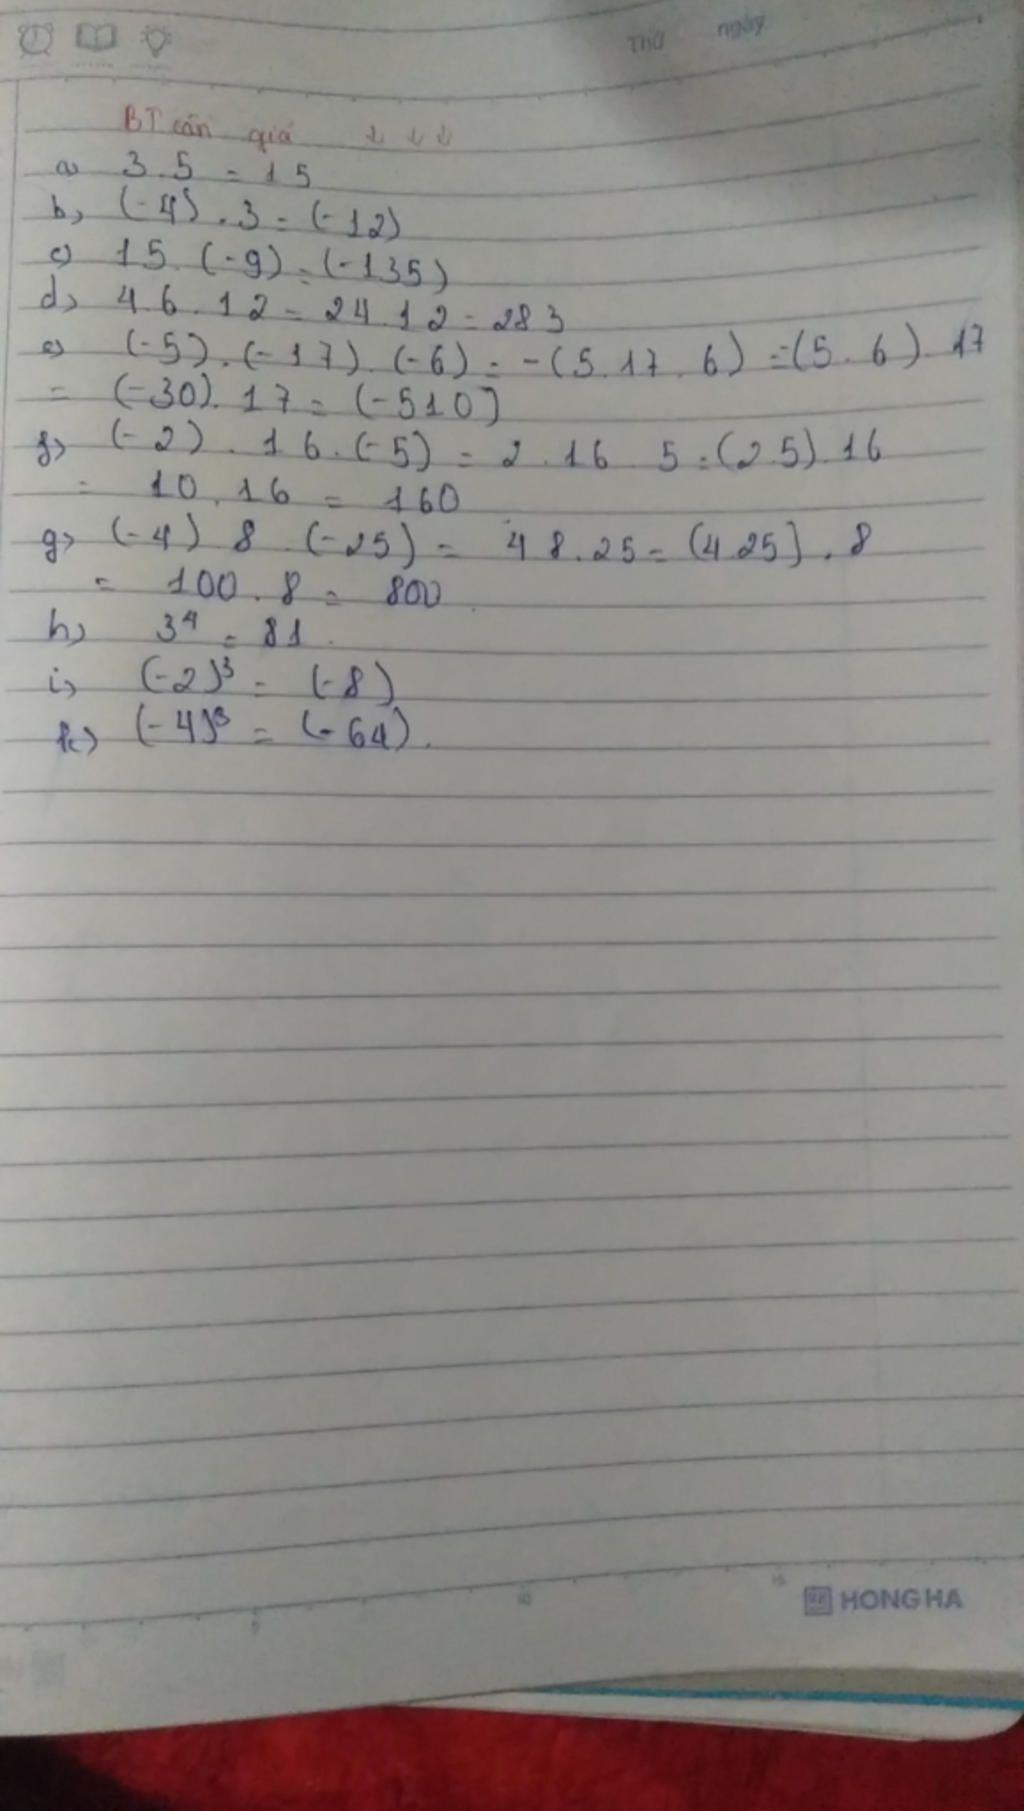 Thứ ngày
BT cần giá ↓ ↓ ↓
a) 3.5 = 15
b) (-4).3 = (-12)
c) 15.(-9) = (-135)
d) 4.6.12 = 24.12 = 283
e) (-5).(-17).(-6) = -(5.17.6) = -(5.6).17
= (-30).17 = (-510)
f) (-2).16.(-5) = 2.16 5 = (2.5).16
= 10.16 = 160
g) (-4) 8 .(-25) = 4 8.25 = (4.25).8
= 100.8 = 800
h) 3⁴ = 81.
i) (-2)³ = (-8)
k) (-4)³ = (-64).
5 10 15
HONG HA